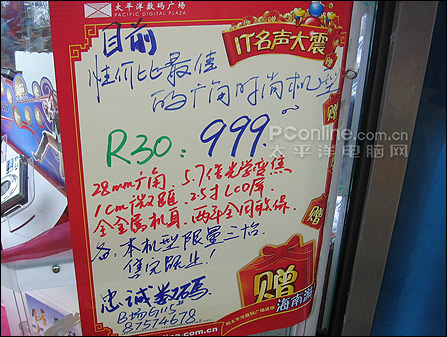 太平洋数码广场
PACIFIC DIGITAL PLAZA
IT名声大震
目前
性价比最佳
的广角时尚机型
R30: 999.
PConline.com.cn
太平洋电脑网
28mm广角 5.7倍光学变焦
1cm微距 2.5寸LCD屏
全金属机身 两年全国联保
备: 本机型限量三台
售完即止!
忠诚数码
87574678
赠
赠
海南游
online.com.cn